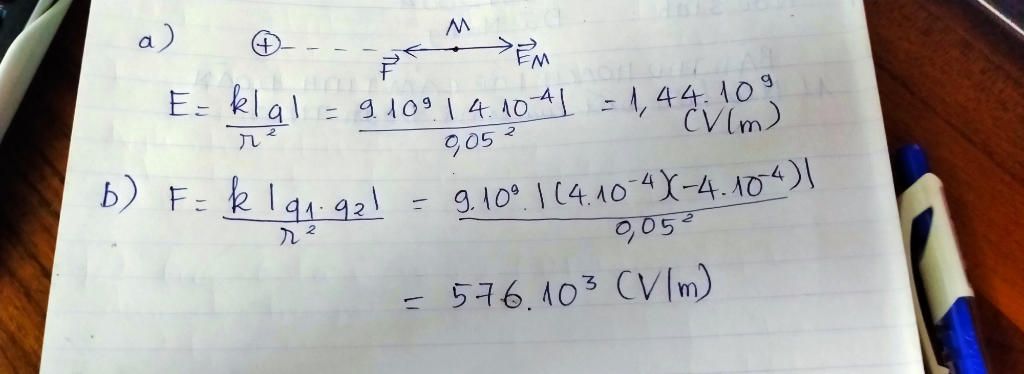 a) ⊕ F⃗ M E⃗M
E = k|q| / r² = 9.10⁹.|4.10⁻⁴| / 0,05² = 1,44.10⁹ (V/m)
b) F = k|q₁.q₂| / r² = 9.10⁹.|(4.10⁻⁴)(-4.10⁻⁴)| / 0,05²
= 576.10³ (V/m)